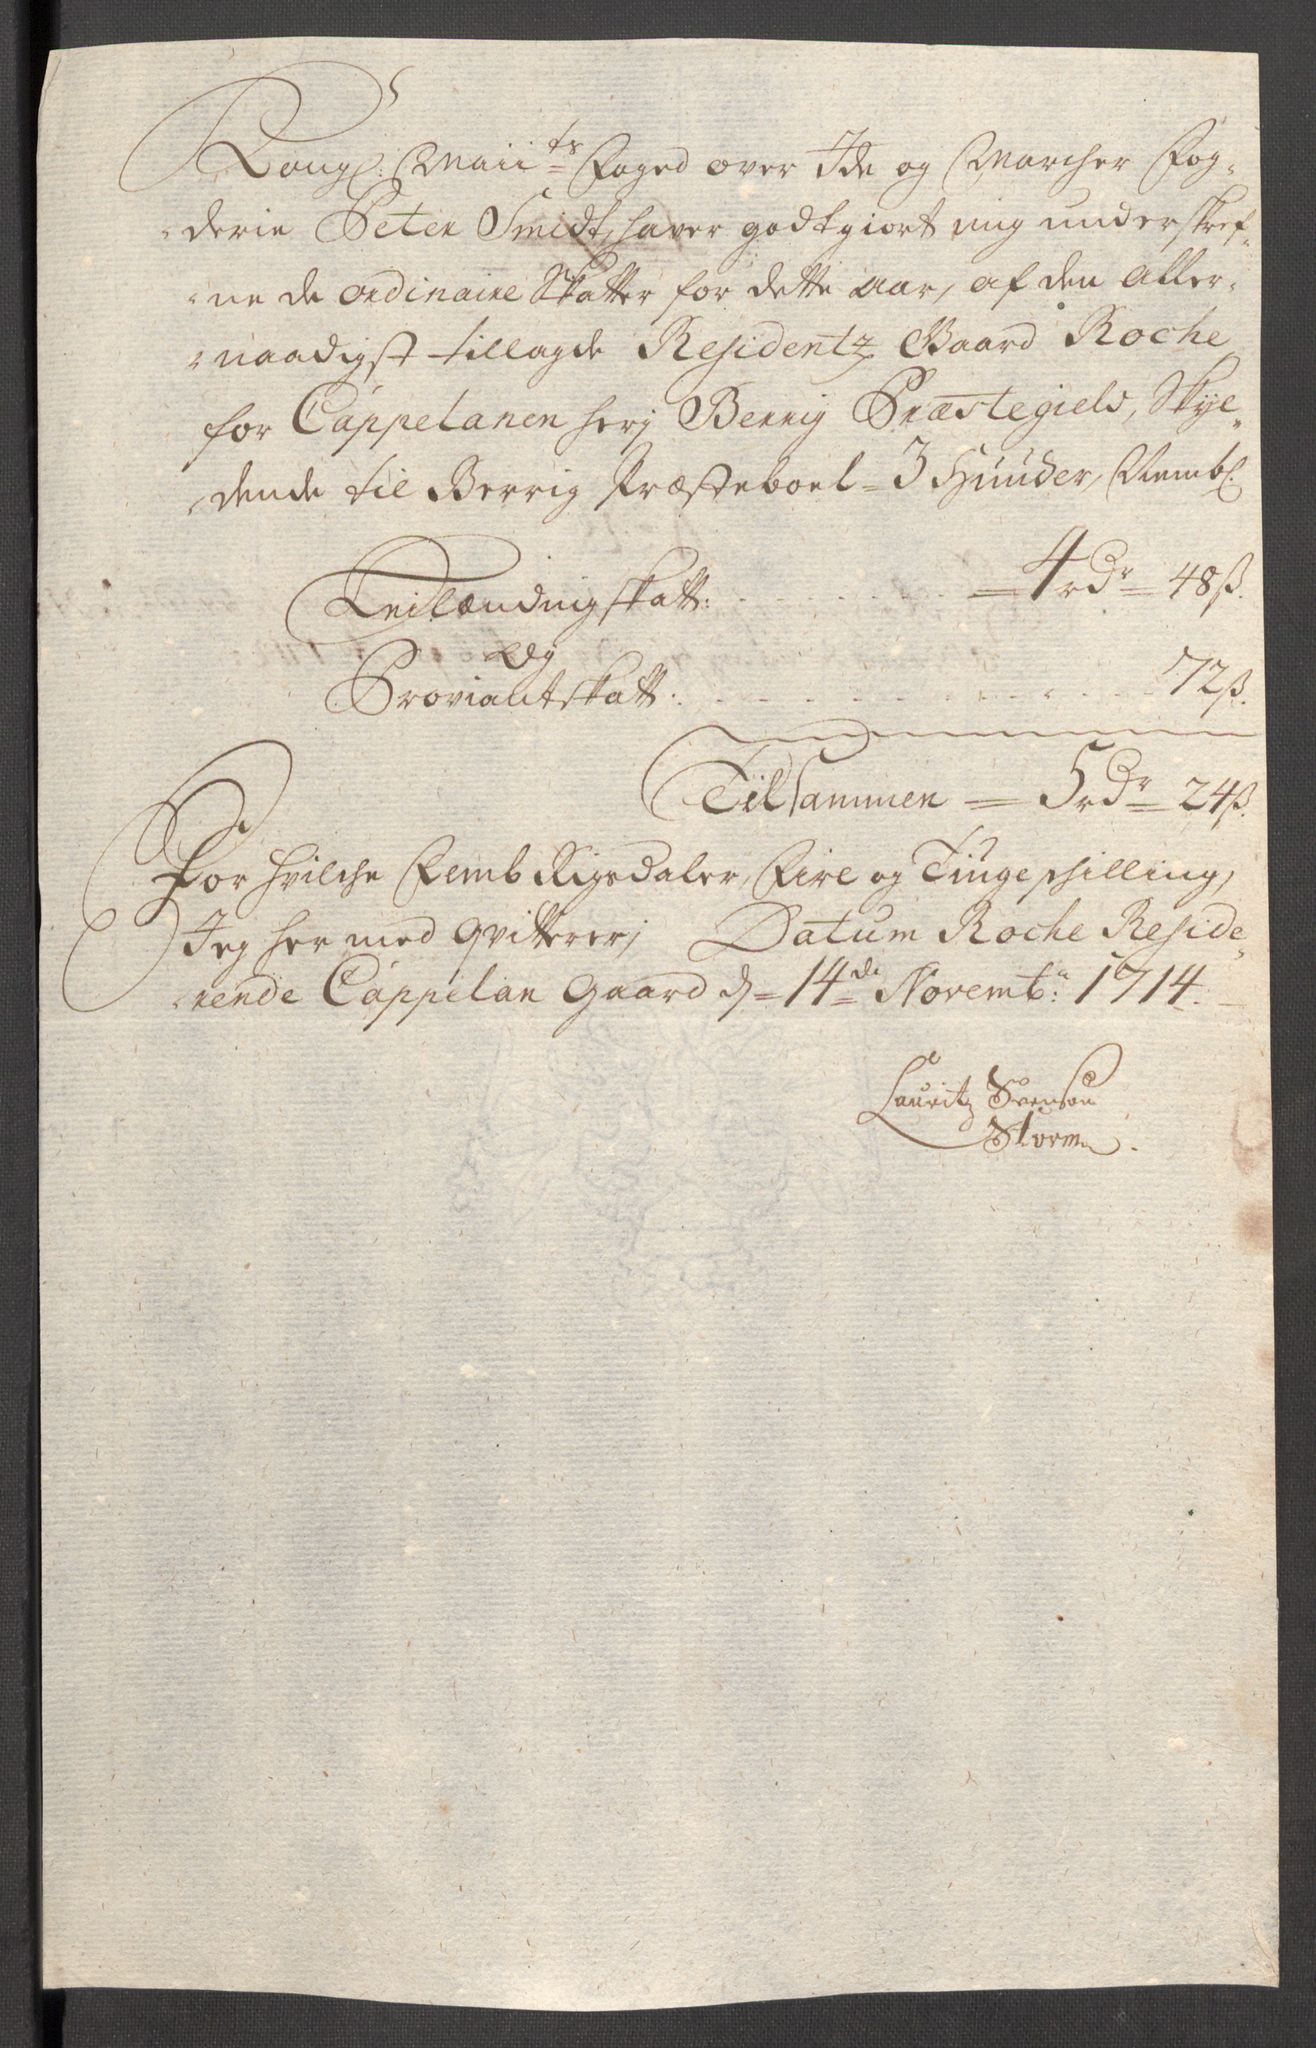 Kongl: Maii^ts Foged over Ide og Marcher Fog-
derie Peter Smidt, haver godtgiort mig underskref-
ne de ordinaire Skatter for dette Aar, af den Aller-
naadigst tillagde Residentz Gaard Roche
for Cappelanen herj Berrig Præstegield, Skyl-
dende til Berrig Præsteboel = 3 Hunder, Nembl:
Leilændingskatt: = 4 rDr = 48 ß.
Og
Proviantskatt: 72 ß.
Tilsammen = 5 rDr = 24 ß.
For hvilche Femb Rigsdaler, Fire og Tiuge shilling,
Jeg her med qvitterer; Datum Roche Reside-
rende Cappelan Gaard d = 14de Novembr: 1714.
Lauritz Svenson
Storm.